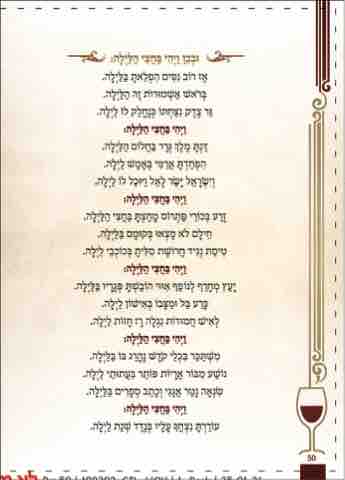 וּבְכֵן וַיְהִי בַּחֲצִי הַלַּיְלָה:
אָז רוֹב נִסִּים הִפְלֵאתָ בַּלַּיְלָה.
בְּרֹאשׁ אַשְׁמוּרוֹת זֶה הַלַּיְלָה.
גֵּר צֶדֶק נִצַּחְתּוֹ כְּנֶחֱלַק לוֹ לַיְלָה.
וַיְהִי בַּחֲצִי הַלַּיְלָה:
דַּנְתָּ מֶלֶךְ גְּרָר בַּחֲלוֹם הַלַּיְלָה.
הִפְחַדְתָּ אֲרַמִּי בְּאֶמֶשׁ לַיְלָה.
וְיִשְׂרָאֵל יָשַׂר לָאֵל וַיּוּכַל לוֹ לַיְלָה.
וַיְהִי בַּחֲצִי הַלַּיְלָה:
זֶרַע בְּכוֹרֵי פַתְרוֹס מָחַצְתָּ בַּחֲצִי הַלַּיְלָה.
חֵילָם לֹא מָצְאוּ בְּקוּמָם בַּלַּיְלָה.
טִיסַת נְגִיד חֲרוֹשֶׁת סִלִּיתָ בְּכוֹכְבֵי לַיְלָה.
וַיְהִי בַּחֲצִי הַלַּיְלָה:
יָעַץ מְחָרֵף לְנוֹפֵף אִוּוּי הוֹבַשְׁתָּ פְגָרָיו בַּלַּיְלָה.
כָּרַע בֵּל וּמַצָּבוֹ בְּאִישׁוֹן לַיְלָה.
לְאִישׁ חֲמוּדוֹת נִגְלָה רָז חֲזוֹת לַיְלָה.
וַיְהִי בַּחֲצִי הַלַּיְלָה:
מִשְׁתַּכֵּר בִּכְלֵי קֹדֶשׁ נֶהֱרַג בּוֹ בַּלַּיְלָה.
נוֹשַׁע מִבּוֹר אֲרָיוֹת פּוֹתֵר בִּעֲתוּתֵי לַיְלָה.
שִׂנְאָה נָטַר אֲגָגִי וְכָתַב סְפָרִים בַּלַּיְלָה.
וַיְהִי בַּחֲצִי הַלַּיְלָה:
עוֹרַרְתָּ נִצְחֲךָ עָלָיו בְּנֶדֶד שְׁנַת לַיְלָה.
50